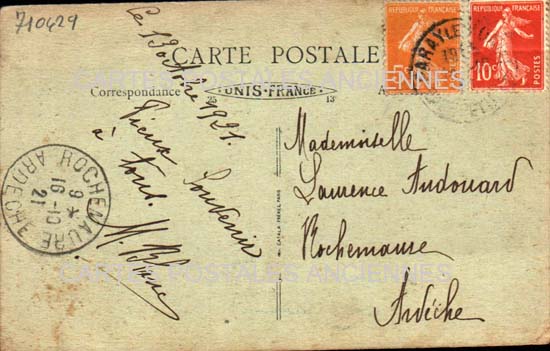 710429
CARTE POSTALE
Correspondance
UNIS-FRANCE
25 13
A
RÉPUBLIQUE FRANÇAISE
RÉPUBLIQUE FRANÇAISE
10c POSTES
CARTES POSTALES ANCIENNES
Le 13 Octobre 1921.
Souvenir
à tous.
Mademoiselle
Laurence Audouard
Rochemaure
Ardèche
ROCHEMAURE
9 *
16-10
21
ARDECHE
CARTES POSTALES ANCIENNES